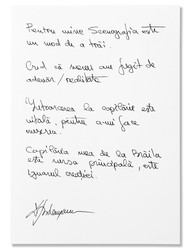 Pentru mine Scenografia este
un mod de a trăi.
Cred că mereu am fugit de
adevăr / realitate
Întoarcerea la copilărie este
vitală, pentru a-mi face
meseria.
Copilăria mea de la Brăila
este sursa principală, este
izvorul creației